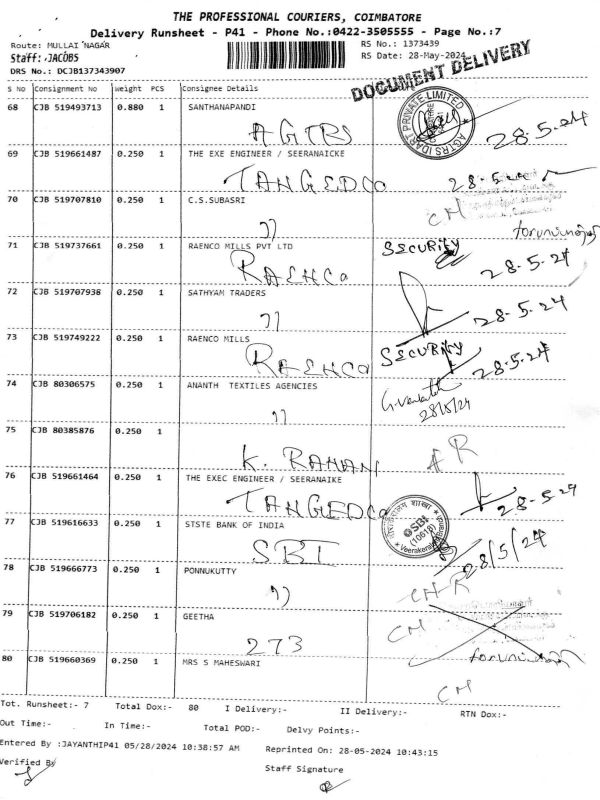 THE PROFESSIONAL COURIERS, COIMBATORE
Delivery Runsheet - P41 - Phone No.:0422-3505555 - Page No.:7
Route: MULLAI NAGAR RS No.: 1373439
Staff: JACOBS RS Date: 28-May-2024
DRS No.: DCJB137343907 DOCUMENT DELIVERY
S No Consignment No weight PCS Consignee Details
68 CJB 519493713 0.880 1 SANTHANAPANDI
AGTRS 28.5.24
69 CJB 519661487 0.250 1 THE EXE ENGINEER / SEERANAICKE
TANGEDCO 28.5.24
70 CJB 519707810 0.250 1 C.S.SUBASRI CM
11
71 CJB 519737661 0.250 1 RAENCO MILLS PVT LTD SECURITY
RAENCO 28.5.24
72 CJB 519707938 0.250 1 SATHYAM TRADERS
11 28.5.24
73 CJB 519749222 0.250 1 RAENCO MILLS SECURITY
RAENCO 28.5.24
74 CJB 80306575 0.250 1 ANANTH TEXTILES AGENCIES
11 28/5/24
75 CJB 80385876 0.250 1
K. RAMAN AR
76 CJB 519661464 0.250 1 THE EXEC ENGINEER / SEERANAIKE
TANGEDCO 28.5.24
77 CJB 519616633 0.250 1 STSTE BANK OF INDIA
SBI SBI (10618) 28/5/24
78 CJB 519666773 0.250 1 PONNUKUTTY
11 CH-R
79 CJB 519706182 0.250 1 GEETHA CM
273
80 CJB 519660369 0.250 1 MRS S MAHESWARI
CM
Tot. Runsheet:- 7 Total Dox:- 80 I Delivery:- II Delivery:- RTN Dox:-
Out Time:- In Time:- Total POD:- Delvy Points:-
Entered By :JAYANTHIP41 05/28/2024 10:38:57 AM Reprinted On: 28-05-2024 10:43:15
Verified By Staff Signature